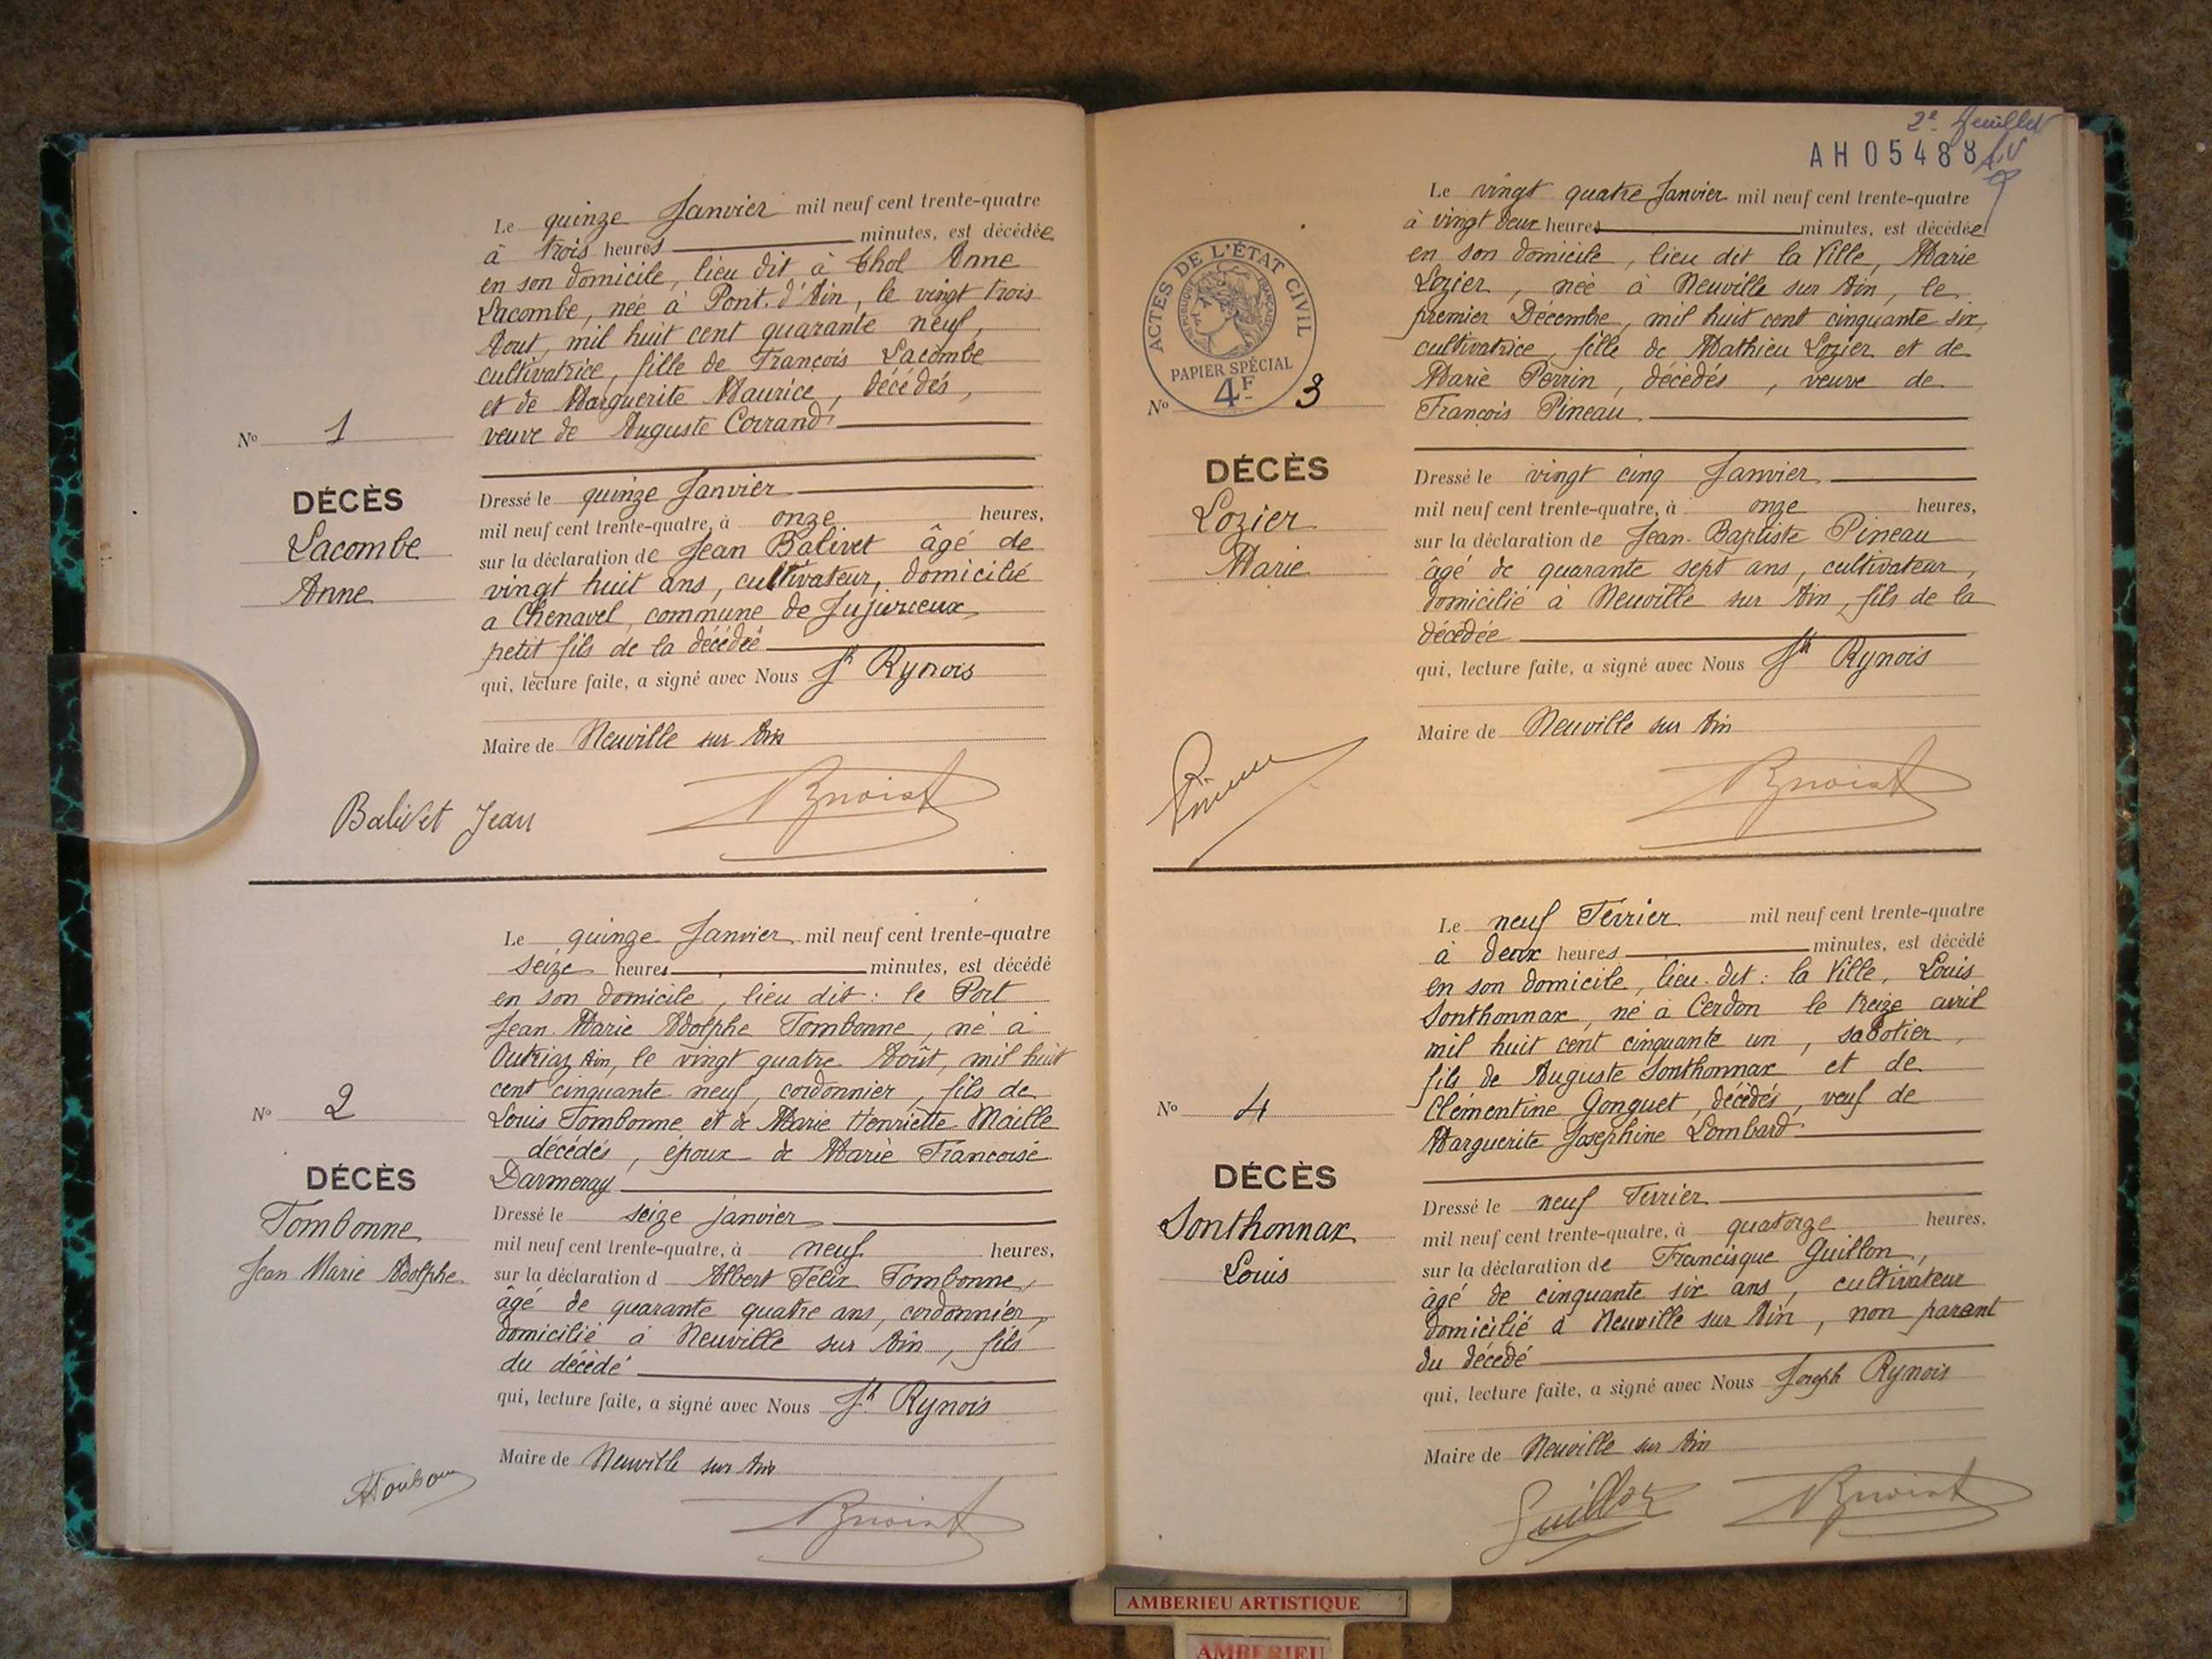 Le quinze Janvier mil neuf cent trente-quatre
à trois heures minutes, est décédée
en son domicile, lieu dit à Thol Anne
Lacombe, née à Pont. d'Ain, le vingt trois
Aout, mil huit cent quarante neuf,
cultivatrice, fille de François Lacombe
et de Marguerite Maurice, décédés,
veuve de Auguste Corrand
No 1
DÉCÈS
Lacombe
Anne
Dressé le quinze Janvier
mil neuf cent trente-quatre, à onze heures,
sur la déclaration de Jean Balivet âgé de
vingt huit ans, cultivateur, domicilié
a Chenavel, commune de Jujurieux,
petit fils de la décédée
qui, lecture faite, a signé avec Nous Jh Rynois
Maire de Neuville sur Ain
Balivet Jean
Le quinze Janvier mil neuf cent trente-quatre
seize heures minutes, est décédé
en son domicile, lieu dit : le Port
Jean Marie Adolphe Tombonne, né à
Outriaz Ain, le vingt quatre Août, mil huit
cent cinquante neuf, cordonnier, fils de
Louis Tombonne et de Marie Henriette Maille
décédés, époux de Marie Francoise
Darmeray
No 2
DÉCÈS
Tombonne
Jean Marie Adolphe
Dressé le seize janvier
mil neuf cent trente-quatre, à neuf heures,
sur la déclaration d Albert Félix Tombonne,
âgé de quarante quatre ans, cordonnier,
domicilié à Neuville sur Ain, fils
du décédé
qui, lecture faite, a signé avec Nous Jh Rynois
Maire de Neuville sur Ain
2e feuillet
AH05488
Le vingt quatre Janvier mil neuf cent trente-quatre
à vingt deux heures minutes, est décédée
en son domicile, lieu dit la Ville, Marie
Lozier, née à Neuville sur Ain, le
premier Décembre, mil huit cent cinquante six,
cultivatrice, fille de Mathieu Lozier et de
Marie Perrin, décédés, veuve de
François Pineau
ACTES DE L'ÉTAT CIVIL
RÉPUBLIQUE FRANÇAISE
PAPIER SPÉCIAL
4F
No 3
DÉCÈS
Lozier
Marie
Dressé le vingt cinq Janvier
mil neuf cent trente-quatre, à onze heures,
sur la déclaration de Jean-Baptiste Pineau
âgé de quarante sept ans, cultivateur,
domicilié à Neuville sur Ain, fils de la
décédée
qui, lecture faite, a signé avec Nous Jh Rynois
Maire de Neuville sur Ain
Pineau
Le neuf Février mil neuf cent trente-quatre
à deux heures minutes, est décédé
en son domicile, lieu-dit : la Ville, Louis
Sonthonnax, né à Cerdon le treize avril
mil huit cent cinquante un, sabotier,
fils de Auguste Sonthonnax et de
Clémentine Gonguet, décédés, veuf de
Marguerite Josephine Lombard
No 4
DÉCÈS
Sonthonnax
Louis
Dressé le neuf Février
mil neuf cent trente-quatre, à quatorze heures,
sur la déclaration de Francisque Guillon,
âgé de cinquante six ans, cultivateur
domicilié à Neuville sur Ain, non parent
du décédé
qui, lecture faite, a signé avec Nous Joseph Rynois
Maire de Neuville sur Ain
Guillon
AMBERIEU ARTISTIQUE
AMBERIEU